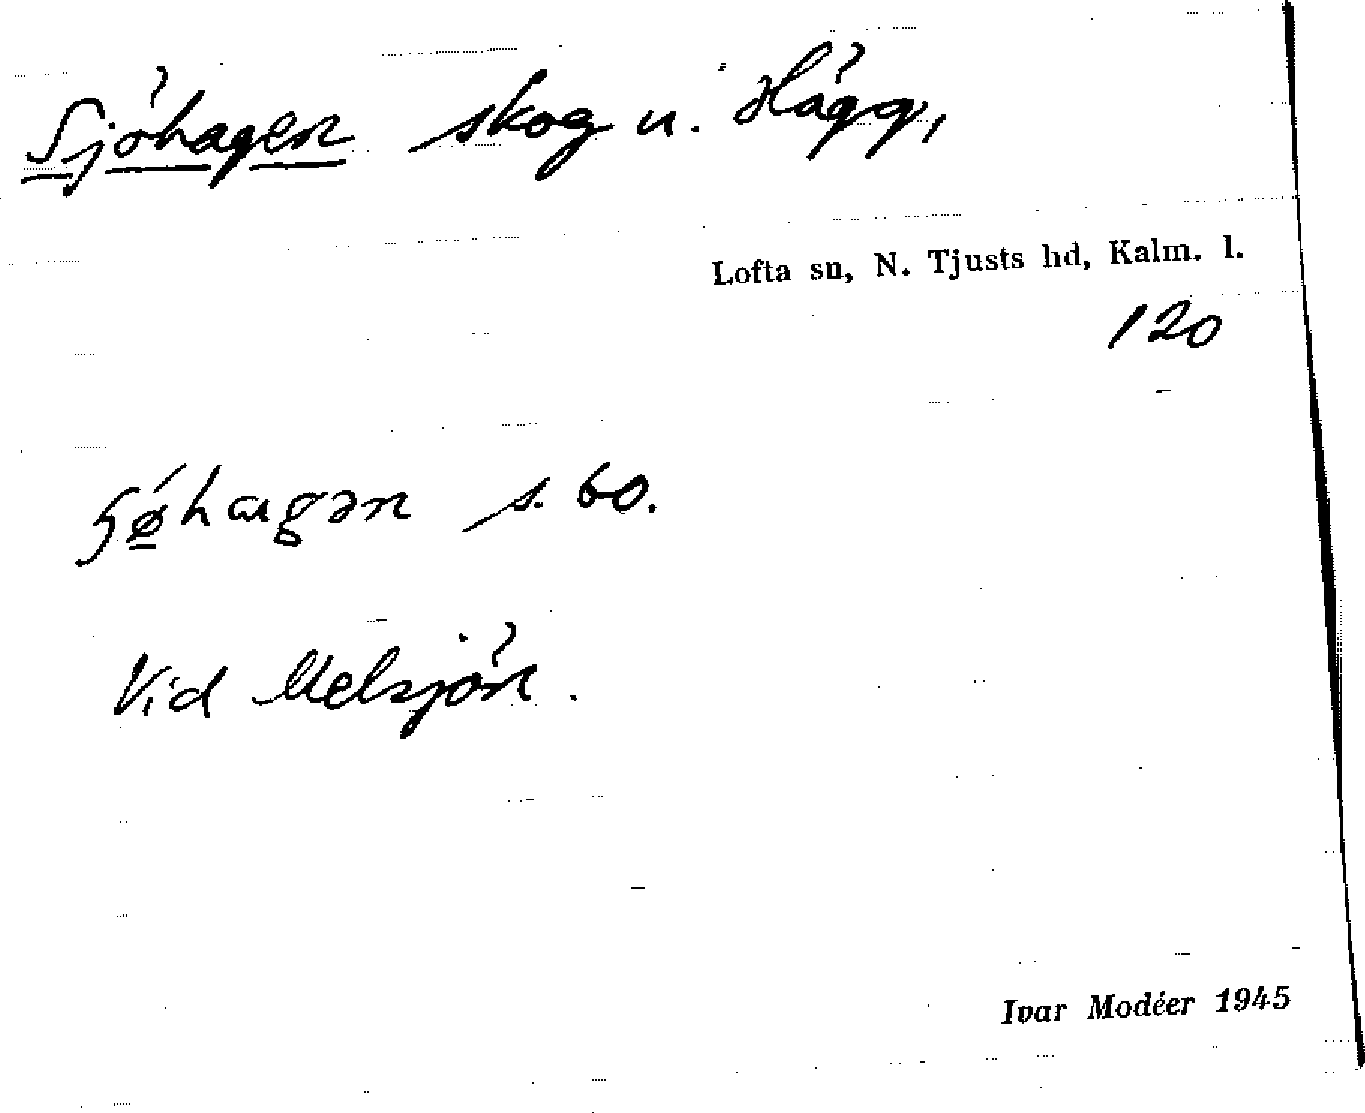 Sjöhagen skog u. Hägg,
Lofta sn, N. Tjusts hd, Kalm. l.
120
s. bo.
Vid Melsjön.
Ivar Modéer 1945